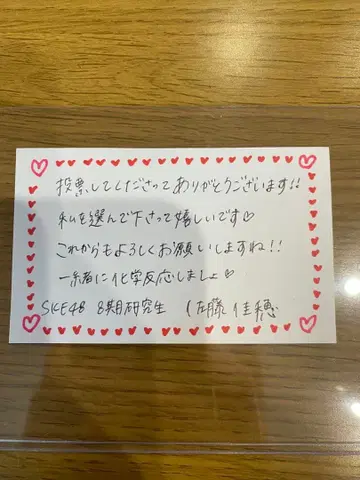 投票してくださってありがとうございます!!
私を選んで下さって嬉しいです♡
これからもよろしくお願いしますね!!
一緒に化学反応しましょ♡
SKE48 8期研究生 佐藤佳穂